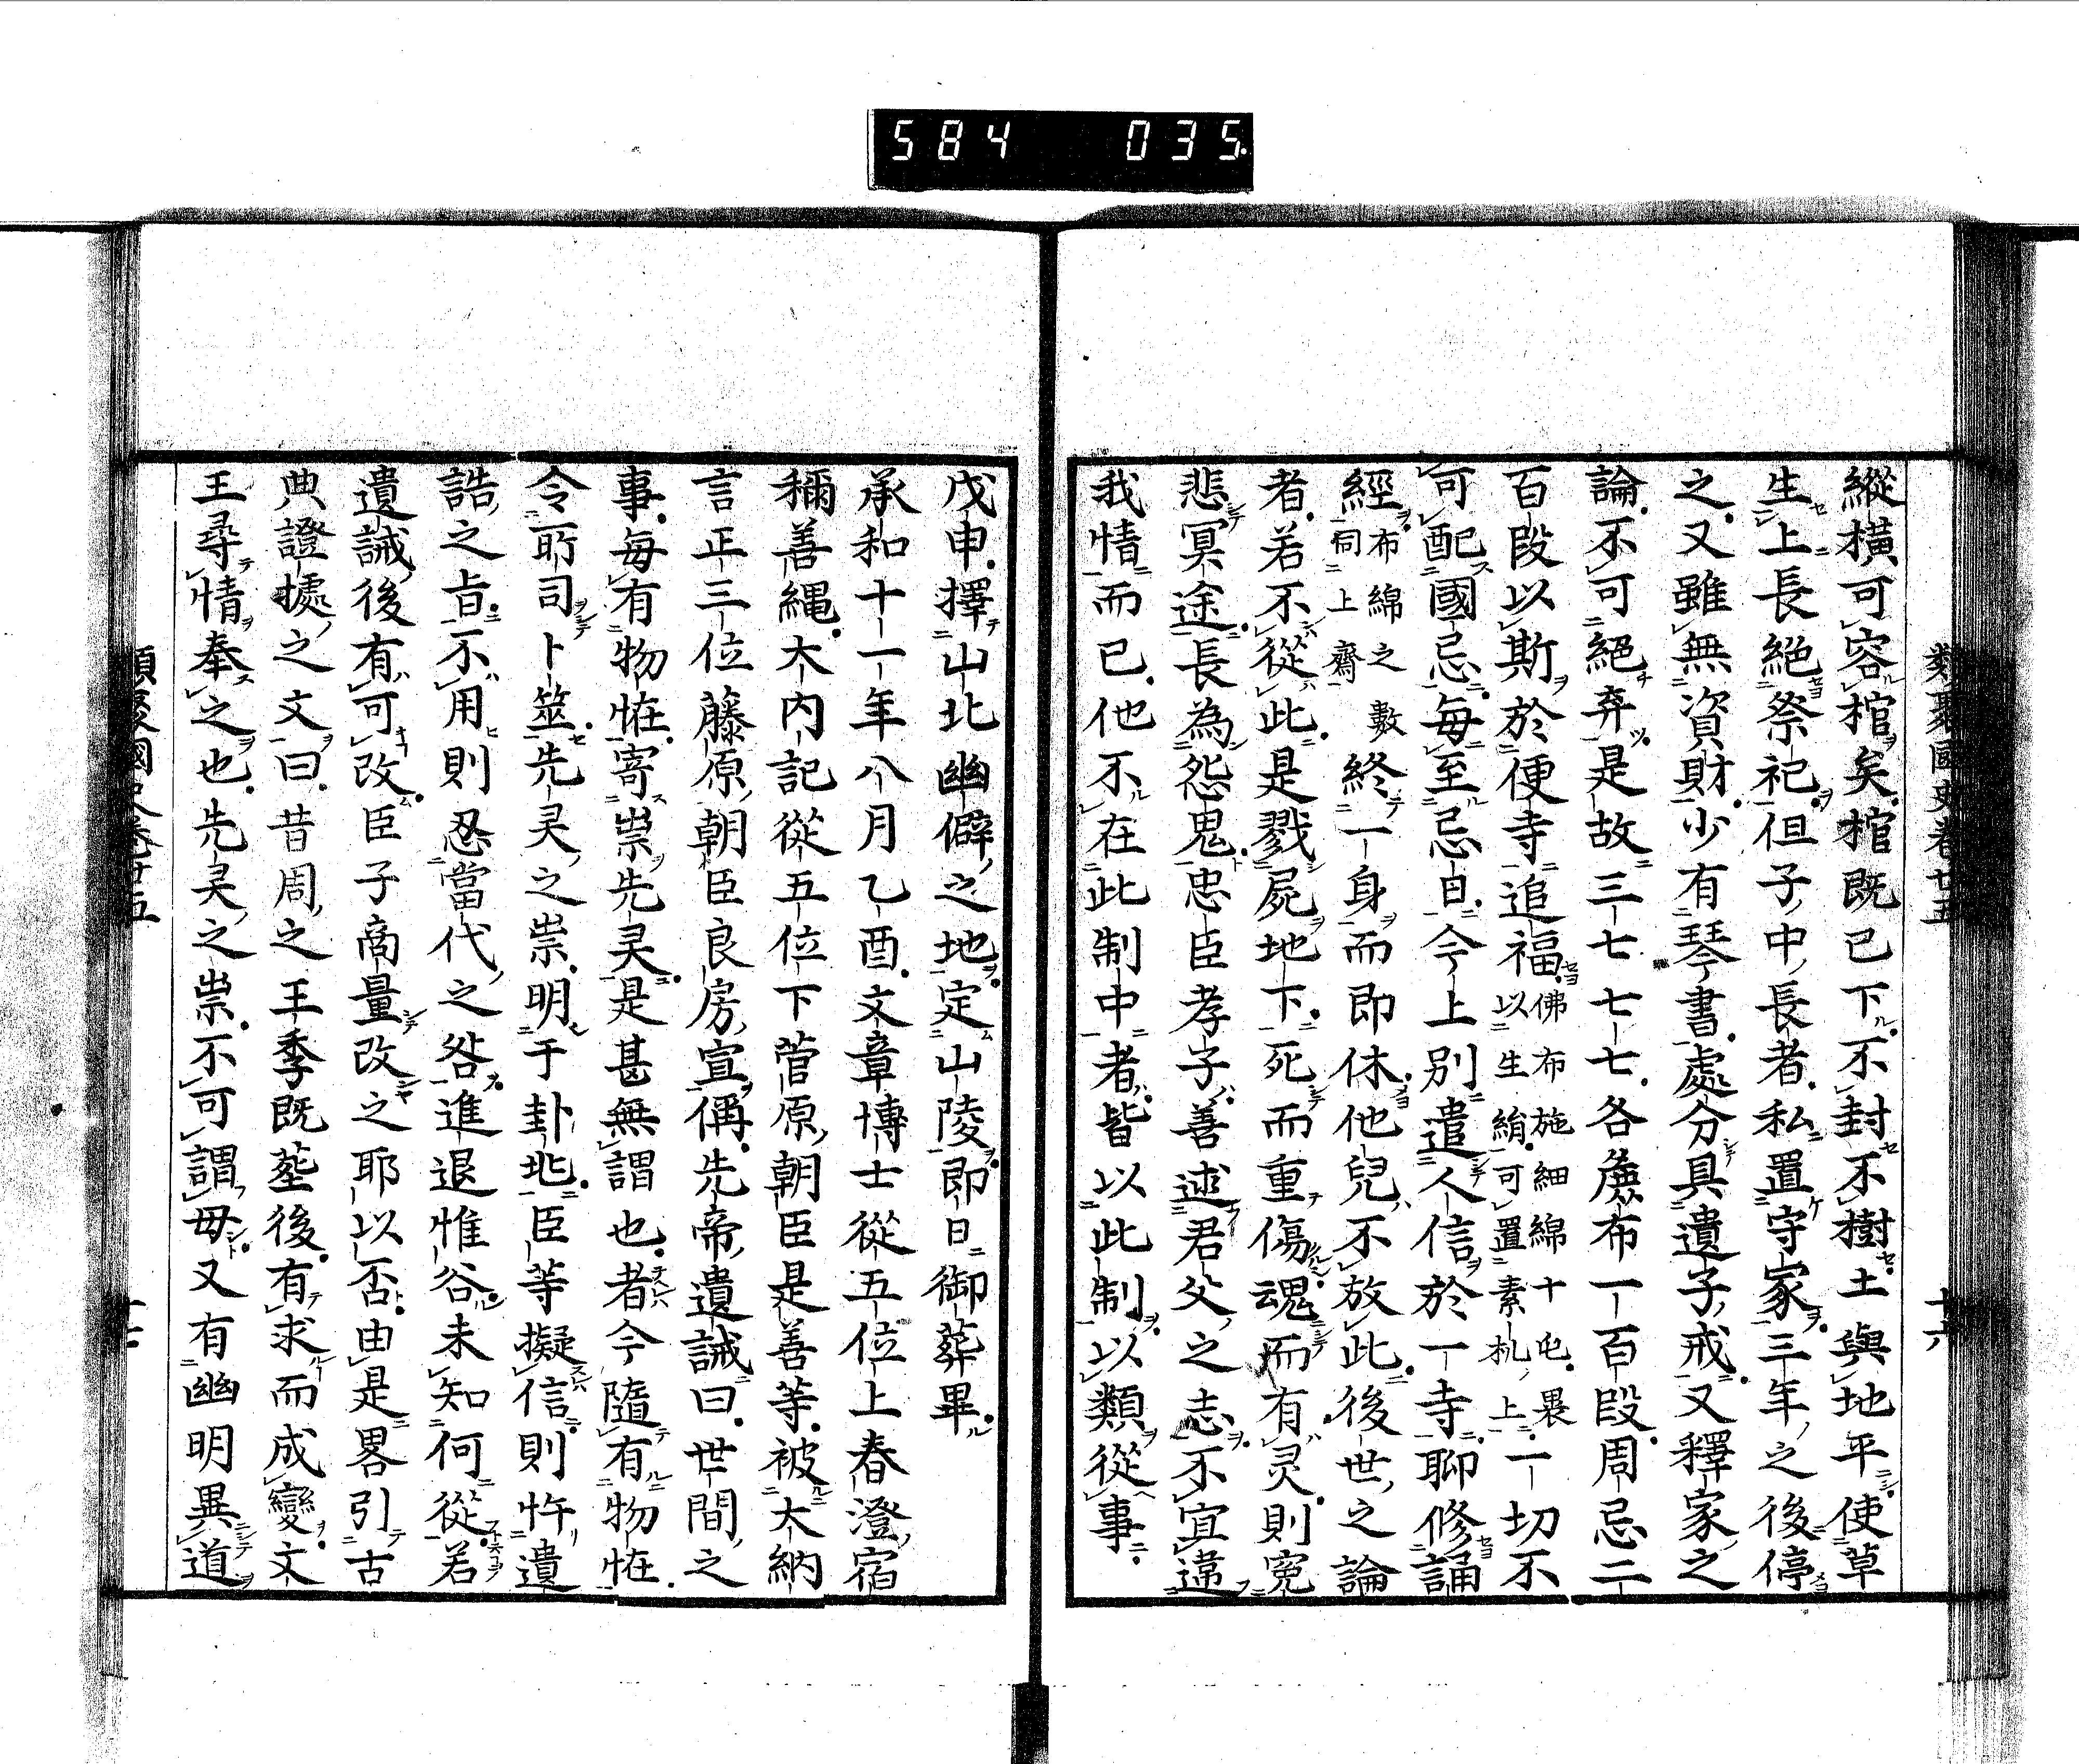 584 035
類聚國史卷廿五 十六
縱橫可容棺矣棺既已下不封不樹土與地平使草
生上長絕祭祀但子中長者私置守家三年之後停
之又雖無資財少有琴書處分具遺子戒又釋家之
論不可絕弃是故三七七七各麁布一百段周忌二
百段以斯於便寺追福佛布施細綿十屯褁以生絹可置素机上一切不
可配國忌每至忌日今上別遣人信於一寺聊修誦
經布綿之數同上齋終一身而即休他兒不放此後世之論
者若不從此是戮屍地下死而重傷魂而有灵則冤
悲冥途長為怨鬼忠臣孝子善逑君父之志不宜違
我情而已他不在此制中者皆以此制以類從事
戊申擇山北幽僻之地定山陵即日御葬畢
承和十一年八月乙酉文章博士從五位上春澄宿
稱善繩大內記從五位下菅原朝臣是善等被大納
言正三位藤原朝臣良房宣偁先帝遺誡曰世間之
事每有物恠寄崇先灵是甚無謂也者今隨有物恠
令所司卜筮先灵之崇明于卦兆臣等擬信則忤遺
誥之旨不用則忍當代之咎進退惟谷未知何從若
遺誡後有可改臣子商量改之耶以否由是畧引古
典證據之文曰昔周之王季既塟後有求而成變文
王尋情奉之也先灵之崇不可謂毋又有幽明異道
類聚國史卷廿五